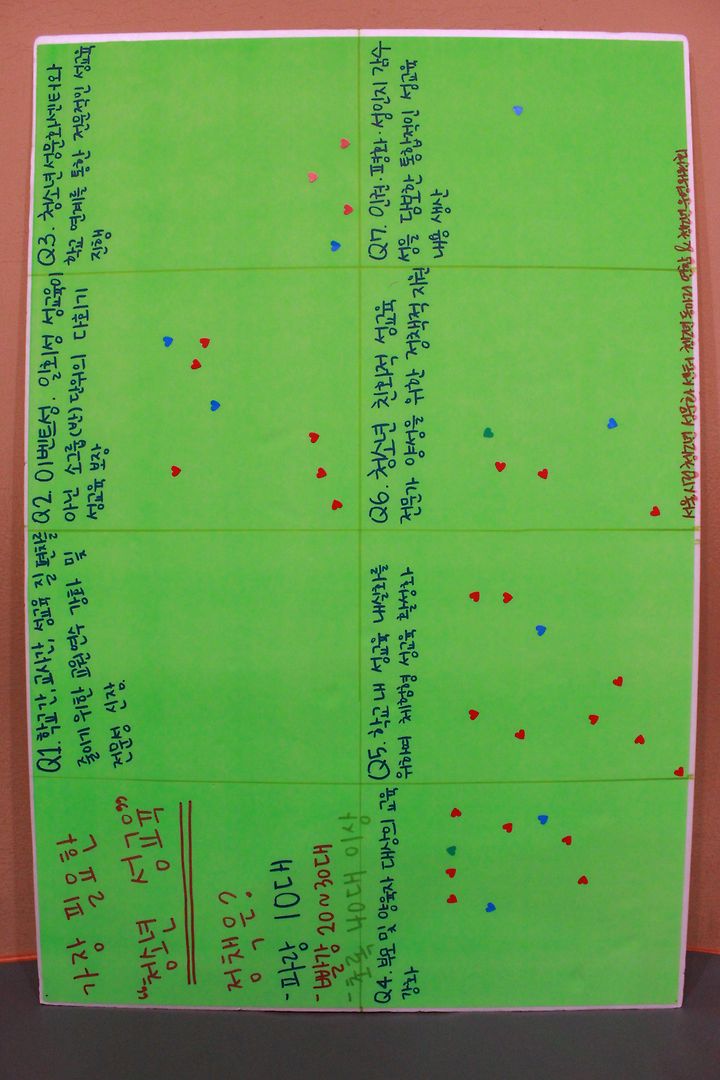 가장 필요한
"청소년 성교육"
정책은?
- 파랑 10대
- 빨강 20~30대
- 초록 40대 이상
Q1. 학교간, 교사간, 성교육 질 편차를
줄이기 위한 교원연수 강화 및
전문성 신장.
Q2. 이벤트성. 일회성 성교육이
아닌 (반)단위의 다회기
성교육 보장
Q3. 청소년성문화센터와
학교 연계를 통한 전문적인 성교육
진행
Q4. 부모 및 양육자 대상의 교육
강화
Q5. 학교 내 성교육 내실화를
위해 성교육
Q6. 청소년 친화적 성교육
전문가 양성을 위한 정책적 지원
Q7. 인권·평화·성인지 감수
성을 통합적인 성교육
내용